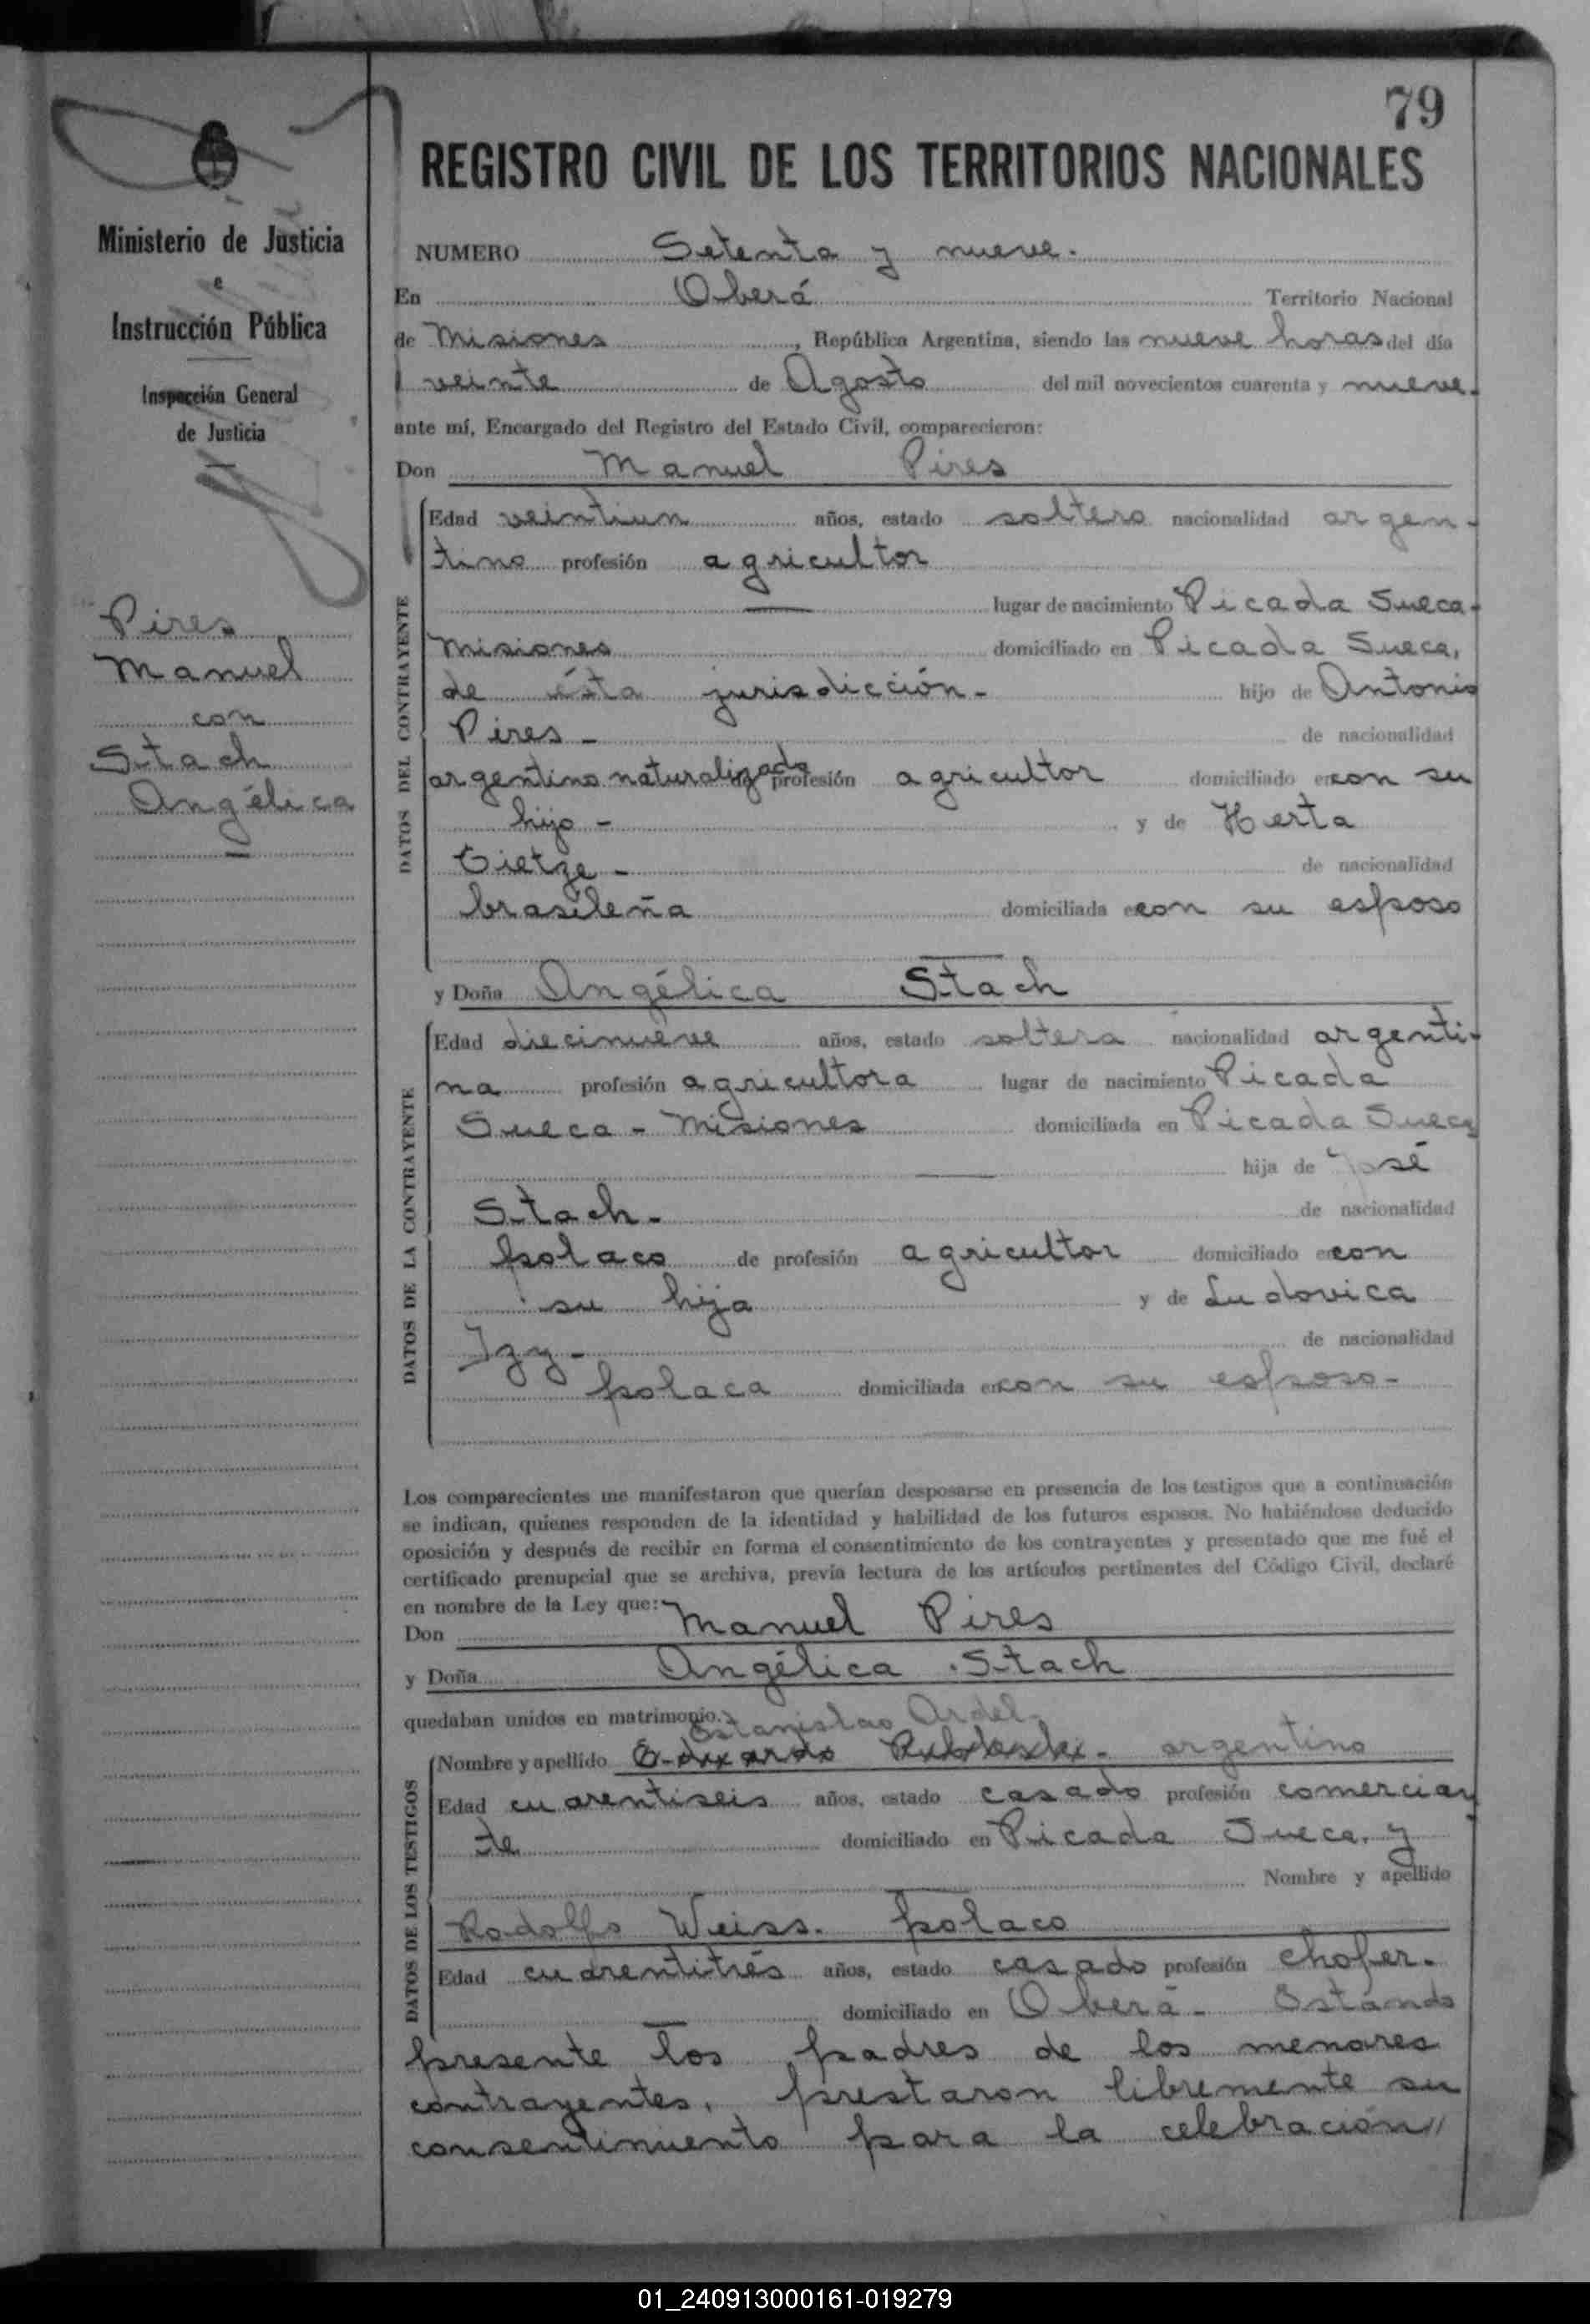 79
REGISTRO CIVIL DE LOS TERRITORIOS NACIONALES
Ministerio de Justicia
e
Instrucción Pública
Inspección General
de Justicia
Pires
Manuel
con
Stach
Angélica
NUMERO Setenta y nueve.
En Oberá Territorio Nacional
de Misiones, República Argentina, siendo las nueve horas del día
veinte de Agosto del mil novecientos cuarenta y nueve.
ante mí, Encargado del Registro del Estado Civil, comparecieron:
Don Manuel Pires
DATOS DEL CONTRAYENTE
Edad veintiun años, estado soltero nacionalidad argen-
tino profesión agricultor
lugar de nacimiento Picada Sueca-
Misiones domiciliado en Picada Sueca,
de ésta jurisdicción- hijo de Antonio
Pires- de nacionalidad
argentino naturalizado de profesión agricultor domiciliado en con su
hijo- y de Herta
Tietze- de nacionalidad
brasileña domiciliada en con su esposo
y Doña Angélica Stach
DATOS DE LA CONTRAYENTE
Edad diecinueve años, estado soltera nacionalidad argenti-
na profesión agricultora lugar de nacimiento Picada
Sueca- Misiones domiciliada en Picada Sueca
hija de José
Stach- de nacionalidad
polaco de profesión agricultor domiciliado en con
su hija y de Ludovica
Izy- de nacionalidad
polaca domiciliada en con su esposo-
Los comparecientes me manifestaron que querían desposarse en presencia de los testigos que a continuación
se indican, quienes responden de la identidad y habilidad de los futuros esposos. No habiéndose deducido
oposición y después de recibir en forma el consentimiento de los contrayentes y presentado que me fué el
certificado prenupcial que se archiva, previa lectura de los artículos pertinentes del Código Civil, declaré
en nombre de la Ley que:
Don Manuel Pires
y Doña Angélica Stach
quedaban unidos en matrimonio.
Estanislao Ardel-
DATOS DE LOS TESTIGOS
Nombre y apellido Eduardo argentino
Edad cuarentiseis años, estado casado profesión comercian
te domiciliado en Picada Sueca, y
Nombre y apellido
Rodolfo Weiss. polaco
Edad cuarentitrés años, estado casado profesión chofer.
domiciliado en Oberá- Estando
presente los padres de los menores
contrayentes, prestaron libremente su
consentimiento para la celebración//
01_240913000161-019279